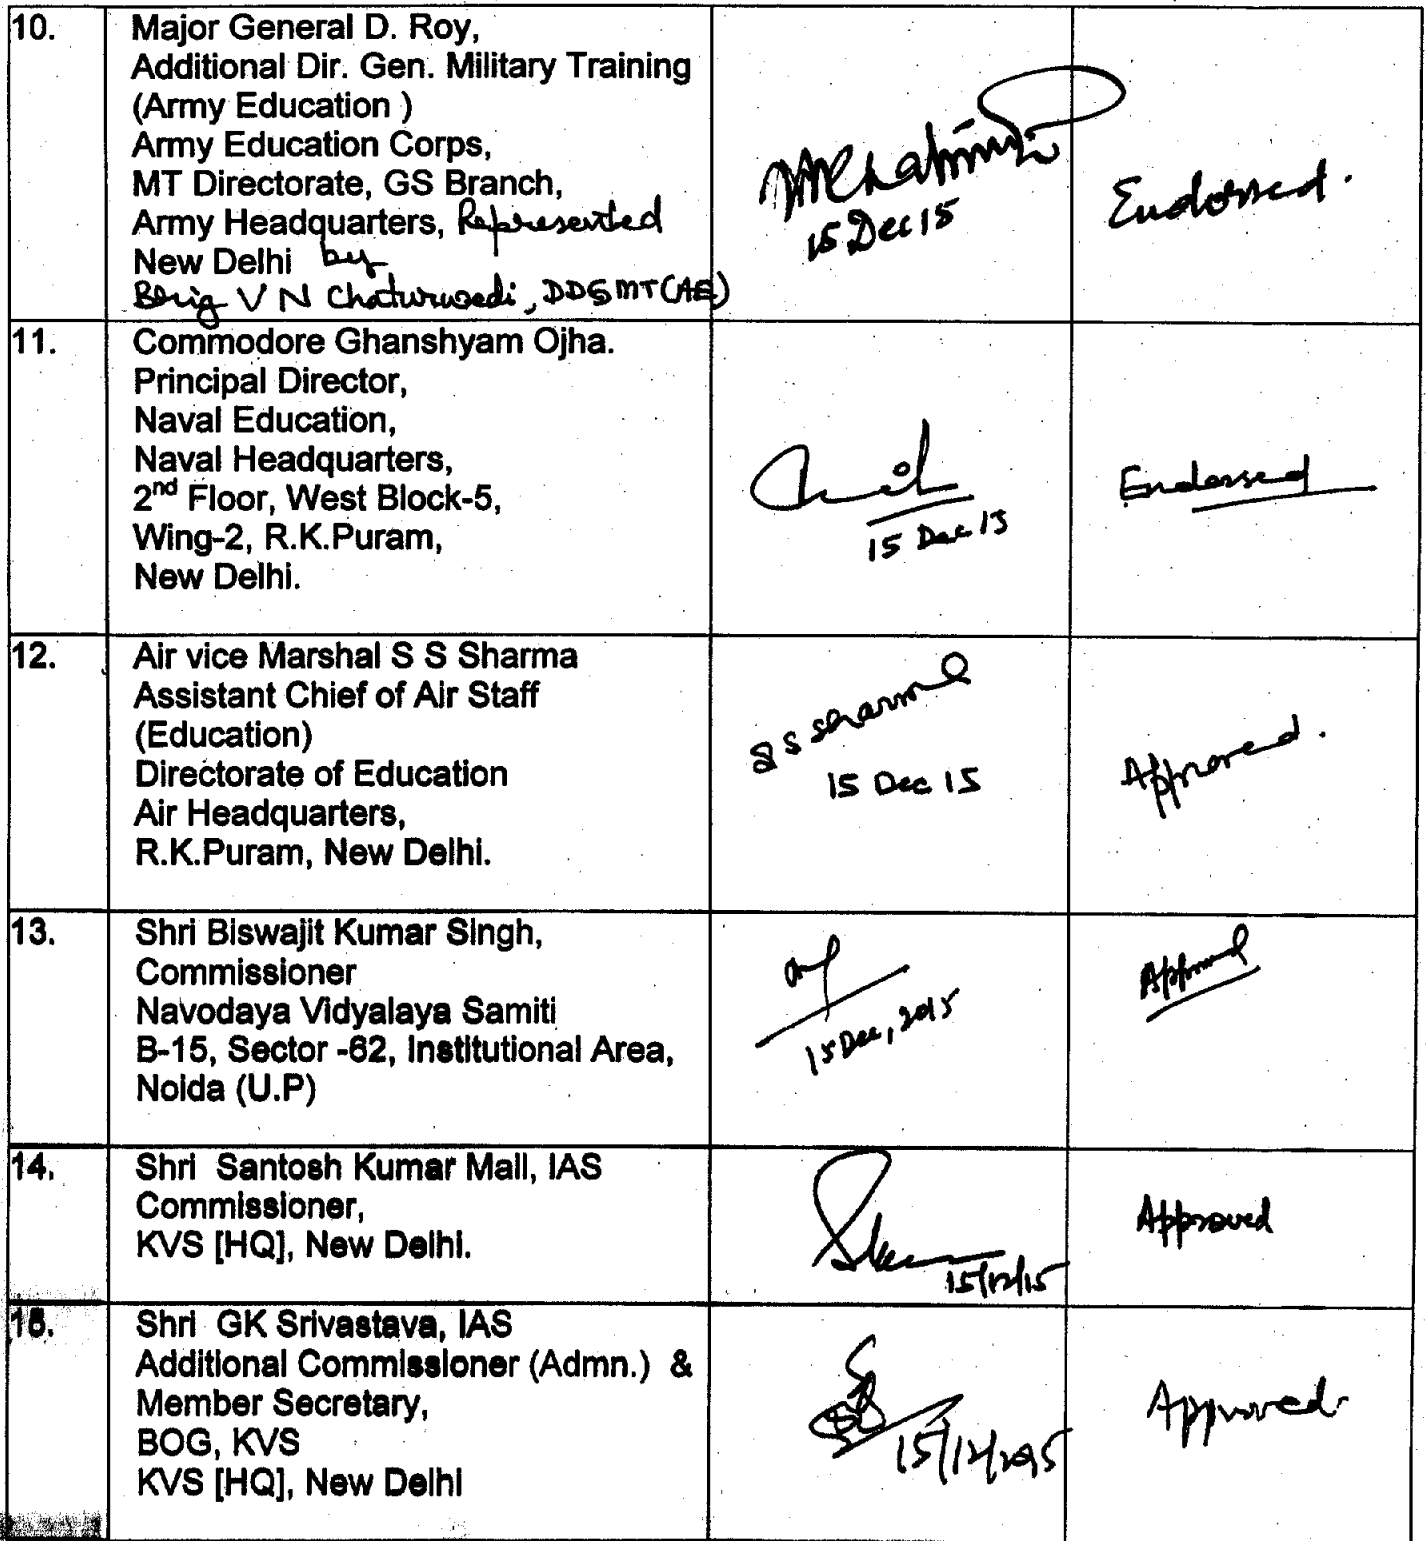 10.
Major General D. Roy,
Additional Dir. Gen. Military Training
(Army Education )
Army Education Corps,
MT Directorate, GS Branch,
Army Headquarters, Represented
New Delhi by
Brig V N Chaturvedi, DDGMT(AE)
15 Dec 15
Endorsed.
11.
Commodore Ghanshyam Ojha.
Principal Director,
Naval Education,
Naval Headquarters,
2nd Floor, West Block-5,
Wing-2, R.K.Puram,
New Delhi.
15 Dec 15
Endorsed
12.
Air vice Marshal S S Sharma
Assistant Chief of Air Staff
(Education)
Directorate of Education
Air Headquarters,
R.K.Puram, New Delhi.
S S Sharma
15 Dec 15
Approved.
13.
Shri Biswajit Kumar Singh,
Commissioner
Navodaya Vidyalaya Samiti
B-15, Sector -62, Institutional Area,
Noida (U.P)
15 Dec, 2015
Approved
14.
Shri Santosh Kumar Mall, IAS
Commissioner,
KVS [HQ], New Delhi.
15/12/15
Approved
15.
Shri GK Srivastava, IAS
Additional Commissioner (Admn.) &
Member Secretary,
BOG, KVS
KVS [HQ], New Delhi
15/12/2015
Approved